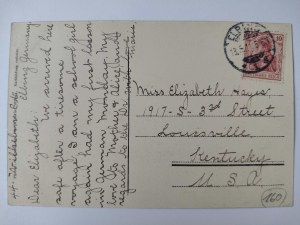 Elbing Germany
Dear Elizabeth We arrived here
safe after a tiresome
voyage I am a school girl
again had my first lesson
in German, Monday. My
love to Mother &
regards to the Dr.
Marie
Miss Elizabeth Hayes
1917-S-3rd Street
Louisville
Kentucky
U.S.A
160